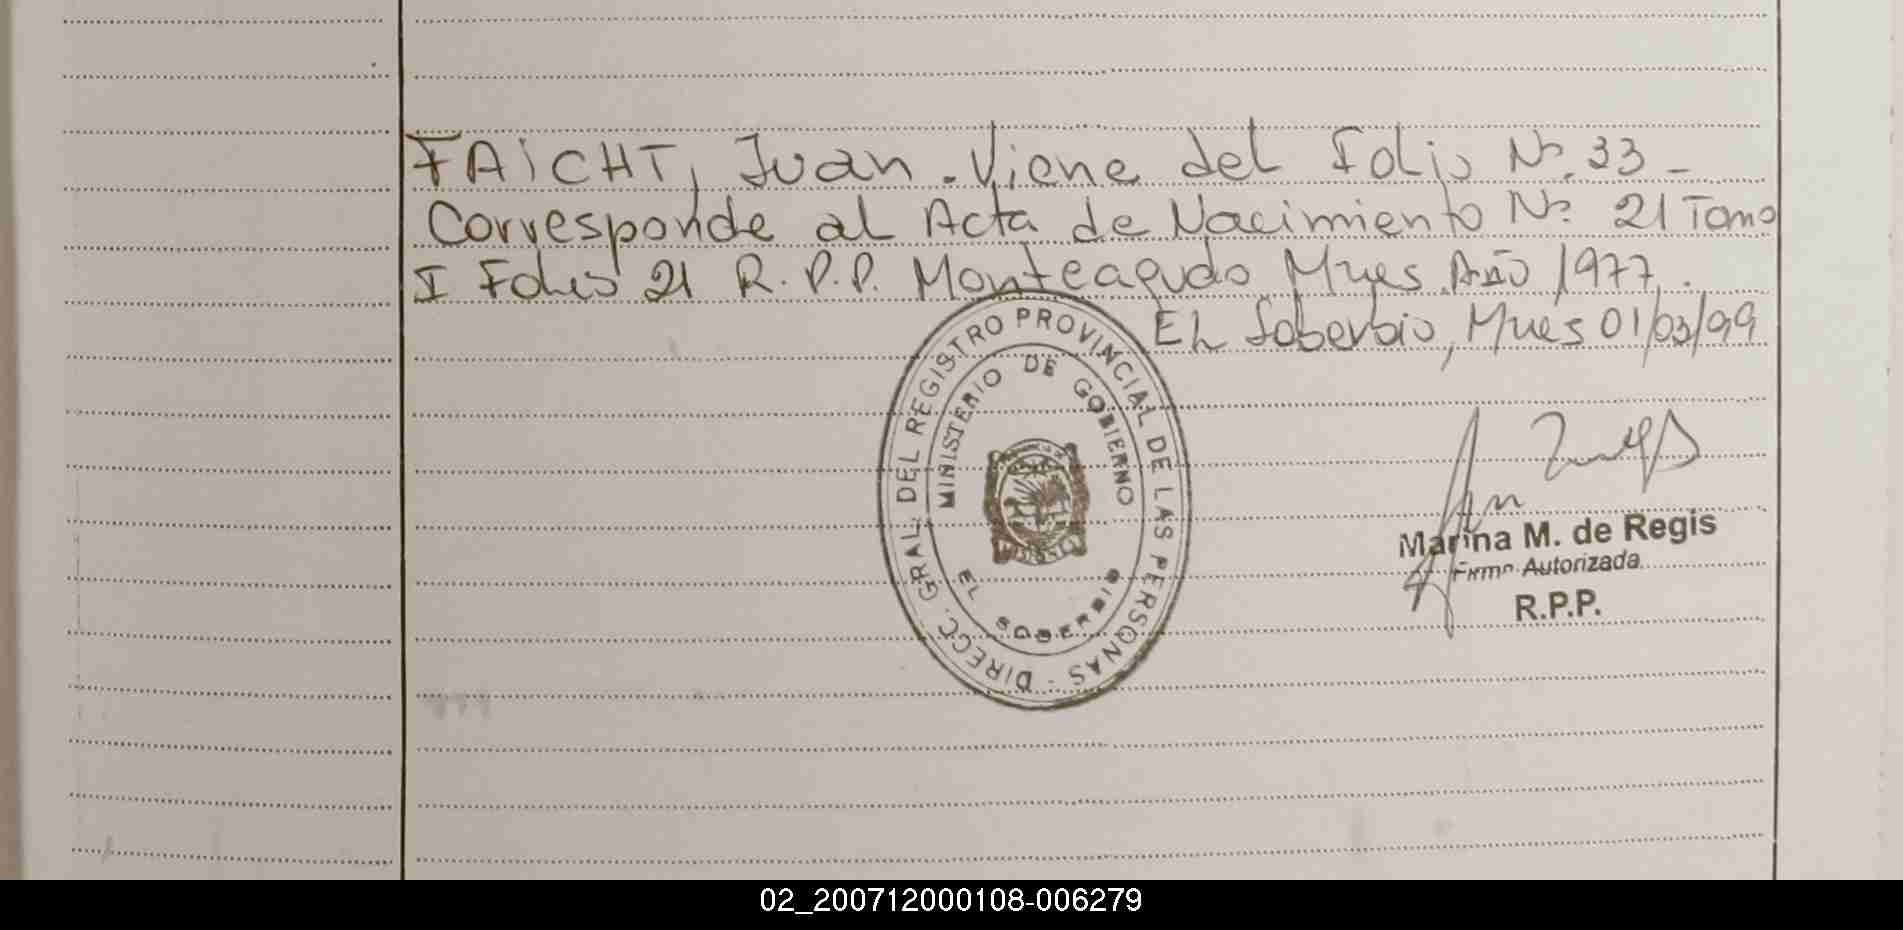 FAICHT, Juan. Viene del Folio Nº. 33 -
Corresponde al Acta de Nacimiento Nº. 21 Tomo
I Folio 21 R.P.P. Monteagudo Mnes Año 1977.
El Soberbio, Mnes 01/03/99
DIRECC. GRAL DEL REGISTRO PROVINCIAL DE LAS PERSONAS -
MINISTERIO DE GOBIERNO
EL SOBERBIO
Marina M. de Regis
Firma Autorizada
R.P.P.
02_200712000108-006279